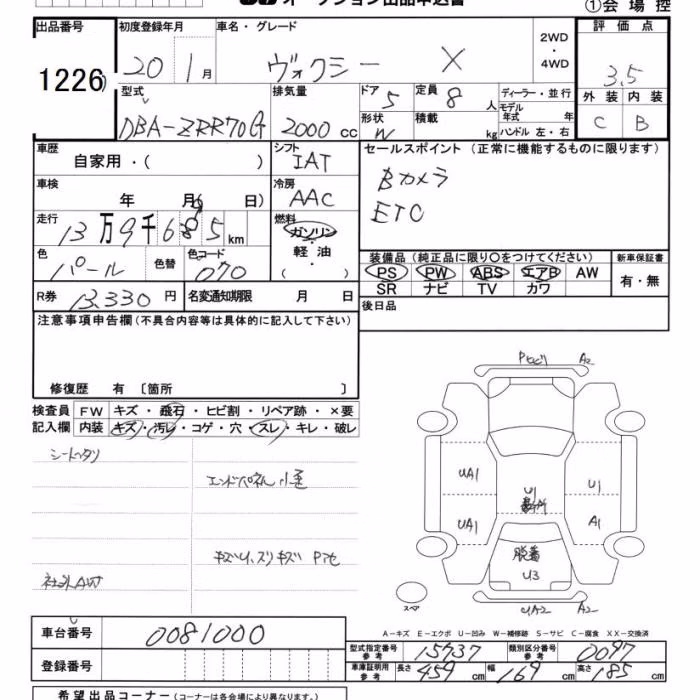 オークション出品申込書
①会場控
出品番号 1226
初度登録年月 20年 1月
車名・グレード ヴォクシー X
2WD・4WD
評価点 3.5
外装 内装
C B
型式 DBA-ZRR70G
排気量 2000 cc
ドア 5
形状 W
定員 8 人
積載 kg
ディーラー・並行
モデル年式 年
ハンドル 左・右
車歴 自家用・( )
シフト IAT
車検 年 月( 日)
冷房 AAC
走行 13万9千685 km
燃料 ガソリン・軽油・( )
色 パール 色替
色コード 070
R券 13,330円
名変通知期限 月 日
セールスポイント(正常に機能するものに限ります)
Bカメラ
ETC
装備品(純正品に限り○をつけてください)
新車保証書
PS PW ABS エアB AW
有・無
SR ナビ TV カワ
後日品
注意事項申告欄(不具合内容等は具体的に記入して下さい)
修復歴 有 〔箇所 〕
検査員 FW キズ・飛石・ヒビ割・リペア跡・×要
記入欄 内装 キズ・汚レ・コゲ・穴・スレ・キレ・破レ
シートヘタリ
エンドパネル小歪
社外AW
A2
UA1
U1
U1
UA1
A1
脱着
U3
UA2 A2
スペア
A-キズ E-エクボ U-凹み W-補修跡 S-サビ C-腐食 XX-交換済
車台番号 0081000
登録番号
型式指定番号 参考 15737
類別区分番号 参考 0097
車庫証明用 参考 長さ 459 cm 幅 169 cm 高さ 185 cm
希望出品コーナー(コーナーは各会場により異なります。)